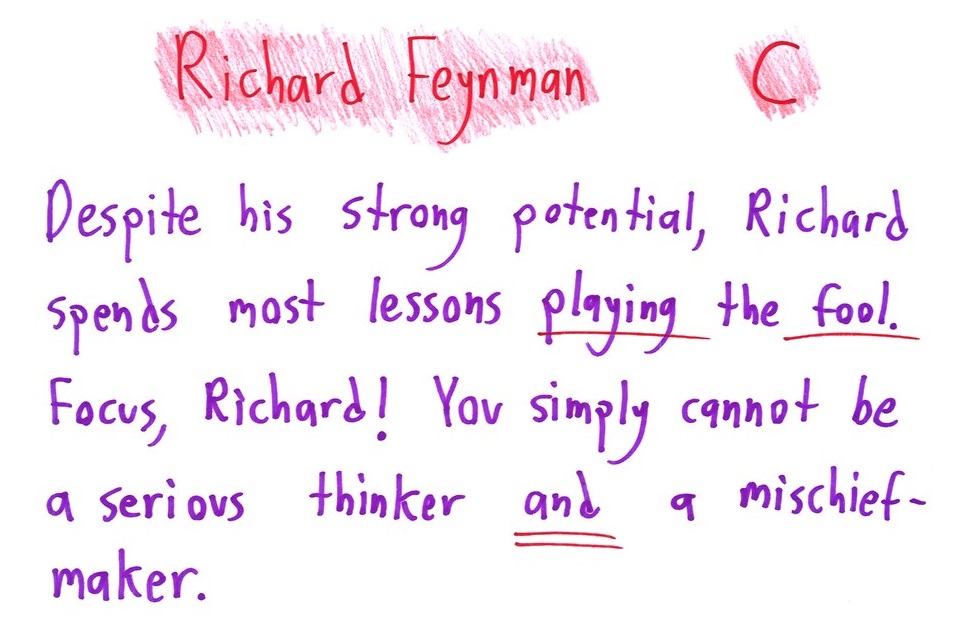 Richard Feynman C
Despite his strong potential, Richard
spends most lessons playing the fool.
Focus, Richard! You simply cannot be
a serious thinker and a mischief-
maker.